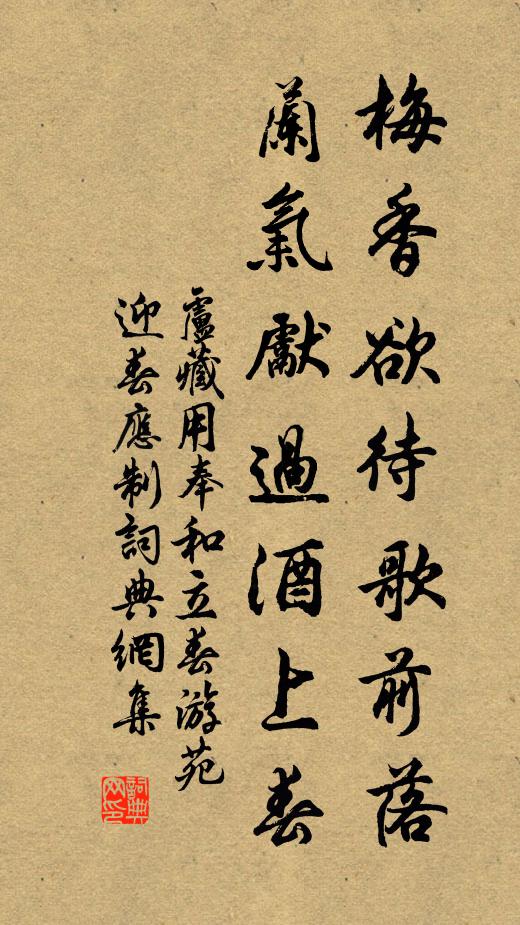 梅香欲待歌前落
蘭氣獻過酒上春
盧藏用奉和立春游苑
迎春應制詞典網集
詞典网印